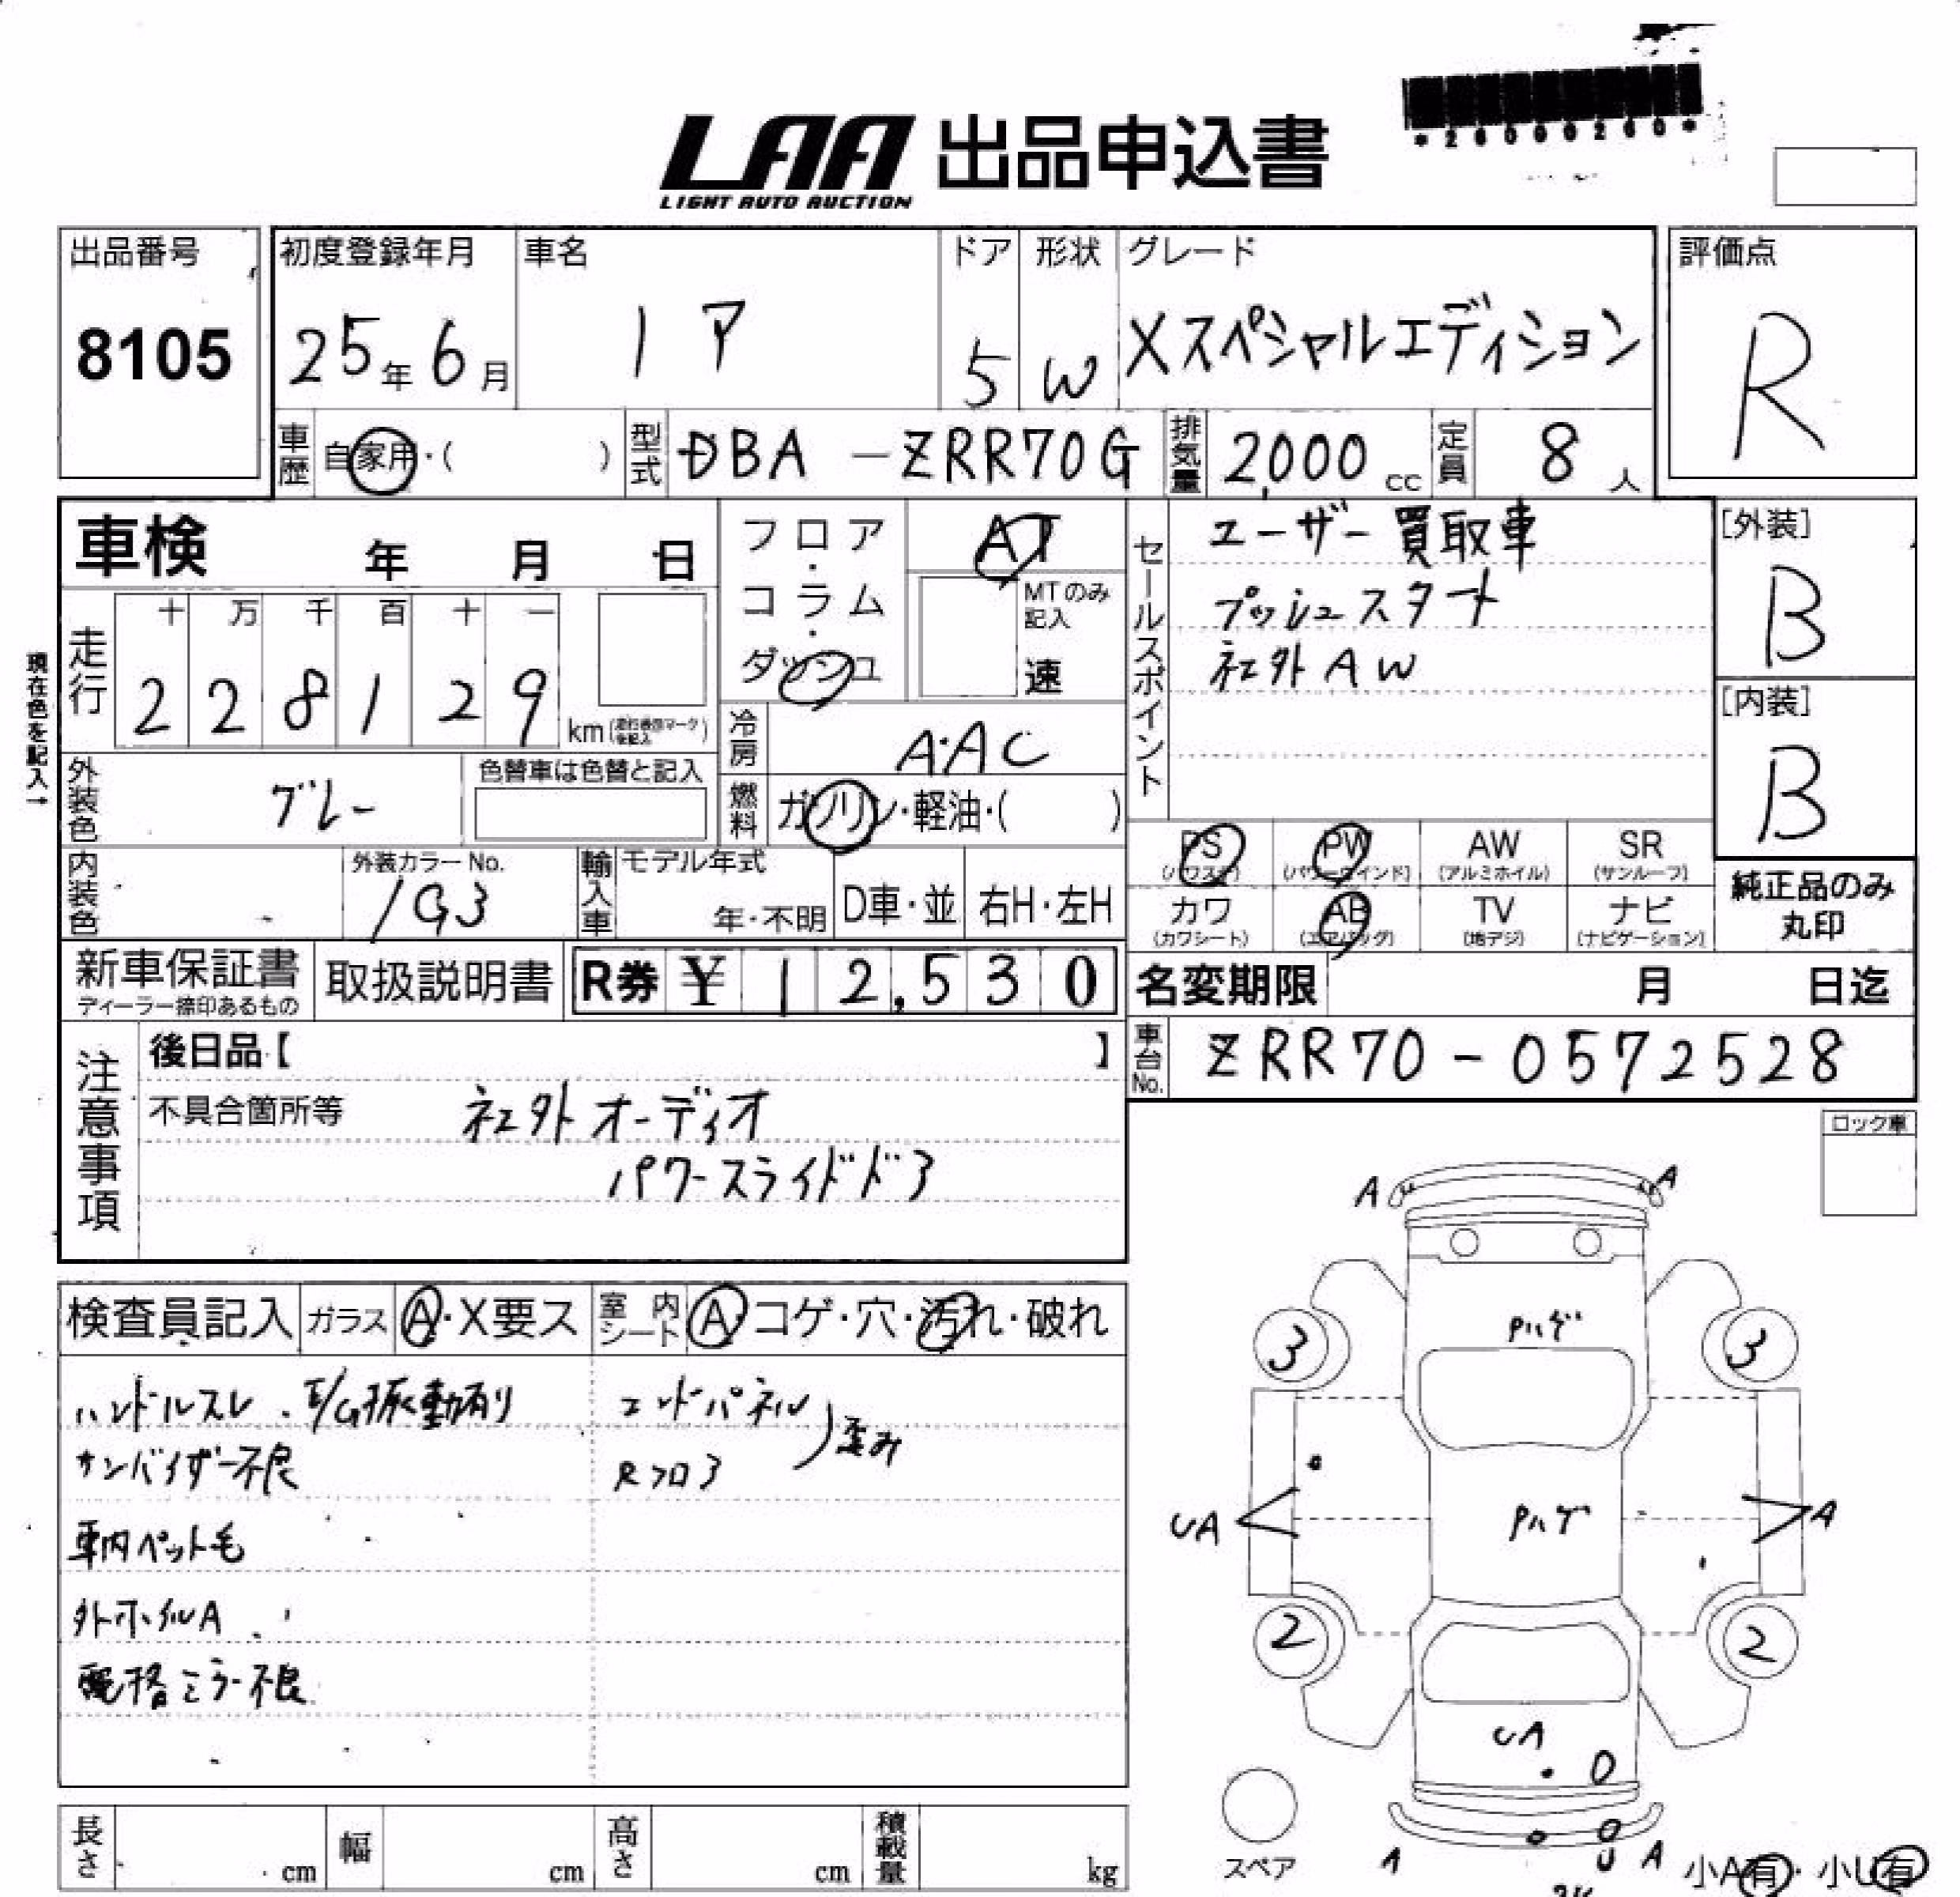 *26000260*
LAA 出品申込書
LIGHT AUTO AUCTION
出品番号
8105
初度登録年月
25年6月
車名
ノア
ドア
5
形状
W
グレード
Xスペシャルエディション
評価点
R
車歴
自家用・( )
型式
DBA-ZRR70G
排気量
2,000 cc
定員
8人
車検 年 月 日
フロア・コラム・ダッシュ
AT
MTのみ記入
速
セールスポイント
ユーザー買取車
プッシュスタート
社外AW
[外装]
B
[内装]
B
現在色を記入→
走行
十 万 千 百 十 一
2 2 8 1 2 9 km
冷房
AAC
外装色
グレー
色替車は色替と記入
燃料
ガソリン・軽油・( )
PS PW AW SR
(パワステ) (パワーウインド) (アルミホイル) (サンルーフ)
カワ AB TV ナビ
(カワシート) (エアバッグ) (地デジ) (ナビゲーション)
純正品のみ
丸印
内装色
外装カラーNo.
1G3
輸入車
モデル年式
年・不明
D車・並
右H・左H
新車保証書
ディーラー捺印あるもの
取扱説明書
R券 ¥12,530
名変期限 月 日迄
車台No.
ZRR70-0572528
注意事項
後日品【 】
不具合箇所等
社外オーディオ
パワースライドドア
ロック車
検査員記入
ガラス
A・X要ス
室内シート
A・コゲ・穴・汚れ・破れ
ハンドルスレ、E/G振動有り
サンバイザー不良
車内ペット毛
外ホイルA
電格ミラー不良
エンドパネル
Rフロア
歪み
A A
Pハゲ
3 3
UA Pハゲ A
2 2
UA
スペア
A U A
小A有・小U有
長さ cm
幅 cm
高さ cm
積載量 kg